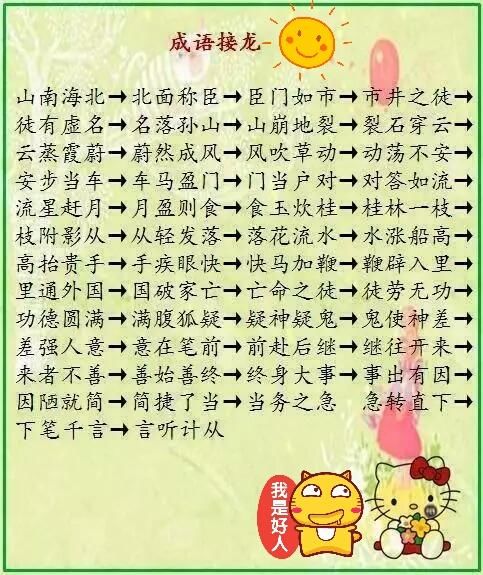 成语接龙
山南海北→北面称臣→臣门如市→市井之徒→
徒有虚名→名落孙山→山崩地裂→裂石穿云→
云蒸霞蔚→蔚然成风→风吹草动→动荡不安→
安步当车→车马盈门→门当户对→对答如流→
流星赶月→月盈则食→食玉炊桂→桂林一枝→
枝附影从→从轻发落→落花流水→水涨船高→
高抬贵手→手疾眼快→快马加鞭→鞭辟入里→
里通外国→国破家亡→亡命之徒→徒劳无功→
功德圆满→满腹狐疑→疑神疑鬼→鬼使神差→
差强人意→意在笔前→前赴后继→继往开来→
来者不善→善始善终→终身大事→事出有因→
因陋就简→简捷了当→当务之急 急转直下→
下笔千言→言听计从
我是好人